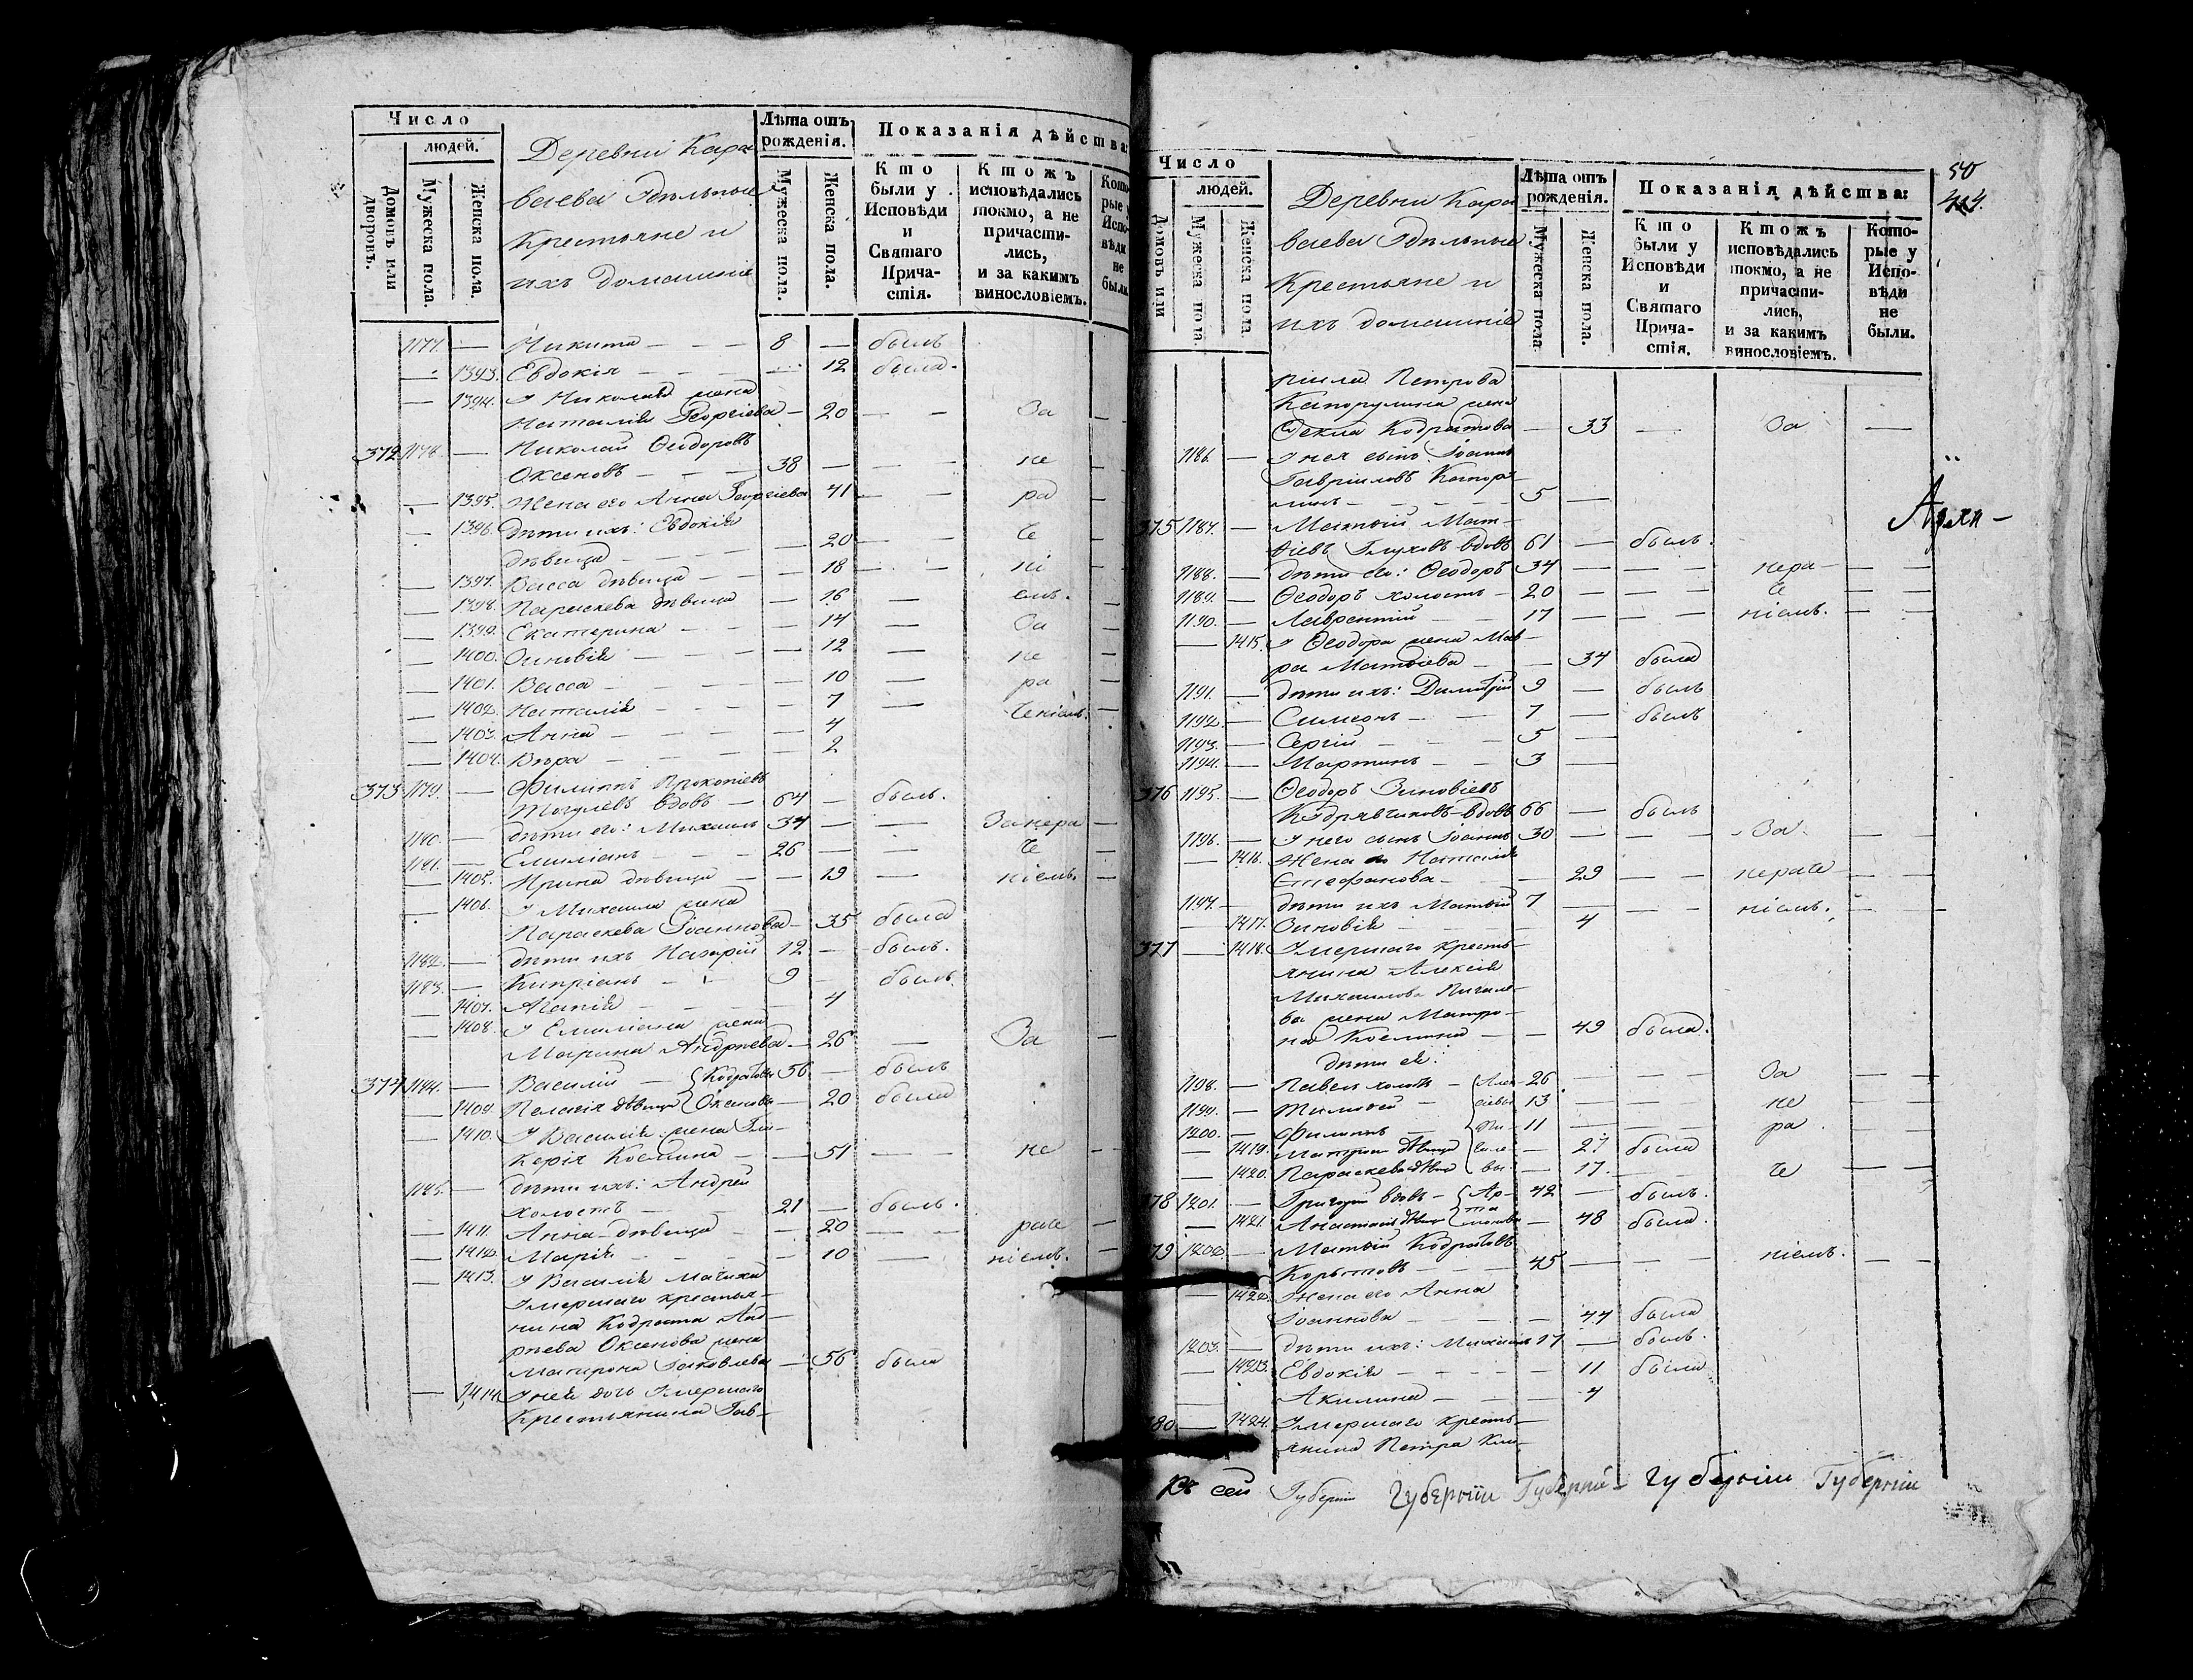 Число
людей.
Домовъ или дворовъ.
Мужеска пола.
Женска пола.
Деревни Кара
ваева Удѣльные
Крестьяне и
ихъ домашніе
Лѣта отъ рожденія.
Мужеска пола.
Женска пола.
Показанія дѣйства:
Кто были у Исповѣди и Святаго Прича- стія.
Ктожъ исповѣдались токмо, а не причасти- лись, и за какимъ винословіемъ.
Кото- рые у Испо- вѣди не были.
1177. — Никита — — — 8 — былъ
— 1393. Евдокія — — — 12 была.
— 1394. У Николая жена
Наталія Георгіева — 20 — — За —
372 1178. — Николай Ѳеодоровъ
Оксеновъ — — — 38 — — — не —
— 1395. Жена его Анна Георгіева 41 — — ра —
— 1396. Дѣти ихъ: Евдокія
дѣвица — — — 20 — — че —
— 1397. Васса дѣвица — — — 18 — — ні —
— 1398. Параскева дѣвица — 16 — емъ. —
— 1399. Екатерина — — — 14 — За —
— 1400. Зиновія — — — — 12 — не —
— 1401. Васса — — — — 10 — ра —
— 1402. Наталія — — — — 7 — ченіемъ. —
— 1403. Анна — — — — 4
— 1404. Вѣра — — 2
373 1179. — Филиппъ Прокопіевъ
вдовъ — 64 — былъ.
1180. — дѣти его: Михаилъ 34 — — Занера —
1181. — Емиліанъ — — — 26 — — че —
— 1405. Ирина дѣвица — — 19 — ніемъ. —
— 1406. У Михаила жена
Параскева Іоаннова — 35 была
1182. — дѣти ихъ Назарій 12 — былъ.
1183. — Кипріанъ — — 9 — былъ.
— 1407. Агапія — — — — 4
— 1408. У Емиліана жена
Марина Андреева — 26 — За —
374 1184. — Василій — Кодратовы 56 — былъ
— 1409. Пелагія дѣвица Оксеновы — 20 была
— 1410. У Василія жена Гли-
керія Космина — — 51 — — не —
1185. — дѣти ихъ: Андрей
холостъ — — 21 — былъ.
— 1411. Анна дѣвица — — 20 — — раче —
— 1412. Марія — — — 10 — ніемъ. —
— 1413. У Василія мачиха
Умершаго крестья-
нина Кодрата Анд-
реева Оксенова жена
Матрона Іаковлева — 56 была
— 1414. У ней дочь Умершаго
Крестьянина Гав-
50
Число
людей.
Домовъ или
Мужеска пола
Женска пола
Деревни Кара
ваева Удѣльные
Крестьяне и
ихъ домашніе
Лѣта отъ рожденія.
Мужеска пола
Женска пола.
Показанія дѣйства:
Кто были у Исповѣди и Святаго Прича- стія.
Ктожъ исповѣдались токмо, а не причасти- лись, и за какимъ винословіемъ.
Кото- рые у Испо- вѣди не были.
ріила Петрова
жена
Ѳекла Кодратова — 33 — За —
1186. — У нея сынъ Іоаннъ
Гавріиловъ
— — — 5 —
375 1187. — Матѳій Мат-
ѳіевъ Глуховъ вдовъ 61 — былъ.
1188. — дѣти его: Ѳеодоръ 34 — — — нера — —
1189. — Ѳеодоръ холостъ — 20 — — — че — —
1190. — Лаврентій — — 17 — — — ніемъ. — —
— 1415. У Ѳеодора жена Мав-
ра Матѳіева — — 34 была
1191. — дѣти ихъ: Димитрій 9 — былъ
1192. — Симеонъ — — 7 — былъ
1193. — Сергій — — — 5 —
1194. — Мартинъ — — 3 —
376 1195. — Ѳеодоръ Зиновіевъ
Кудрявчиковъ вдовъ 66 — былъ
1196. — У него сынъ Іоаннъ 30 — — — За — —
— 1416. Жена его Наталія
Стефанова — — 29 — — нераче — —
1197. — дѣти ихъ Матѳій 7 — — — ніемъ. — —
— 1417. Зиновія — — — 4
377 — 1418. Умершаго кресть-
янина Алексія
Михаилова Пигале-
ва жена Матро-
на Космина — — 49 была.
дѣти ея:
1198. — Павелъ холостъ — Алек- 26 — — За — —
1199. — Тимоѳей — сіевы 13 — — не — —
1200. — Филиппъ — Пи- 11 — — ра — —
— 1419. Матрона дѣвица гале- — 27 была
— 1420. Параскева дѣвица вы. — 17. — че — —
378 1201. — Григорій вдовъ — Ар- 42 — былъ.
— 1421. Анастасія дѣвица — 48 была.
379 1202. — Матѳій Кодратовъ
Корытовъ — — — 45 — — — ніемъ. — —
— 1422. Жена его Анна
Іоаннова — — — — 44 была
1203. — дѣти ихъ: Михаилъ 17 — былъ.
— 1423. Евдокія — — — 11 была
— Акилина — — — 4
380 — 1424. Умершаго кресть-
янина Петра
сей Губерніи Губерніи Губерній Губерніи Губерніи